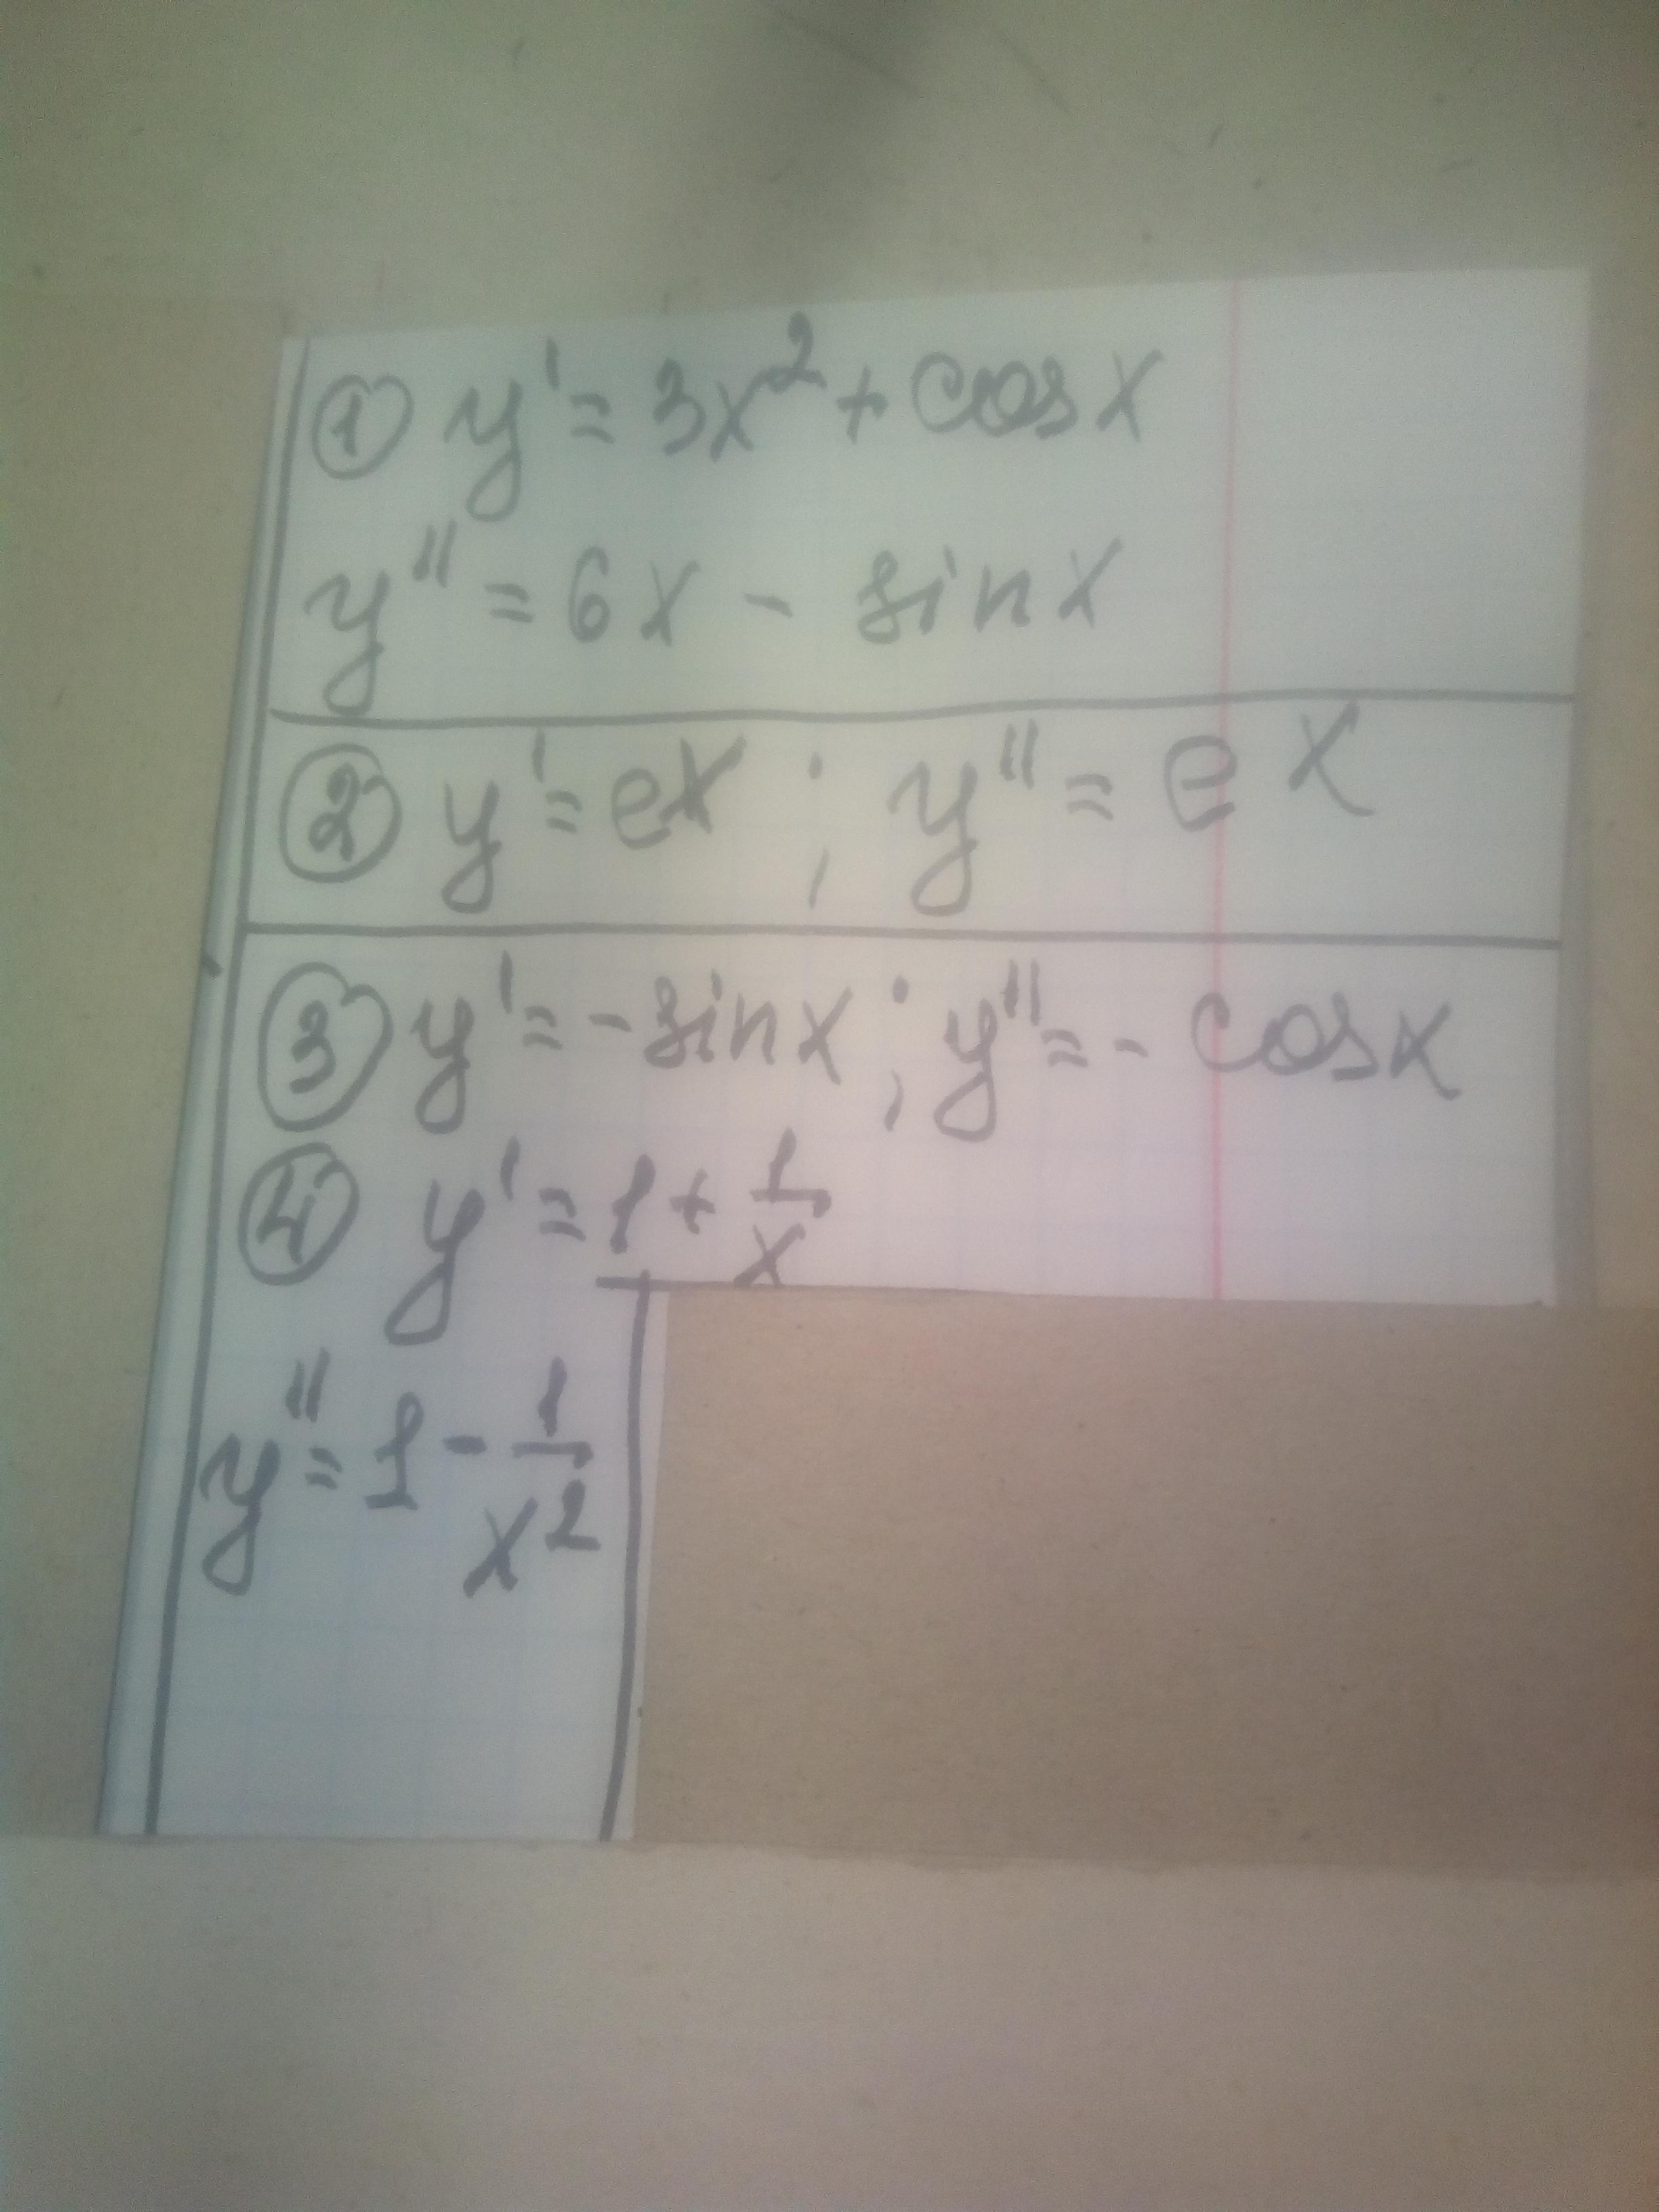 ① y' = 3x² + cos x
y'' = 6x - sin x
② y' = eˣ ; y'' = eˣ
③ y' = - sin x ; y'' = - cos x
④ y' = 1 + 1/x
y'' = 1 - 1/x²